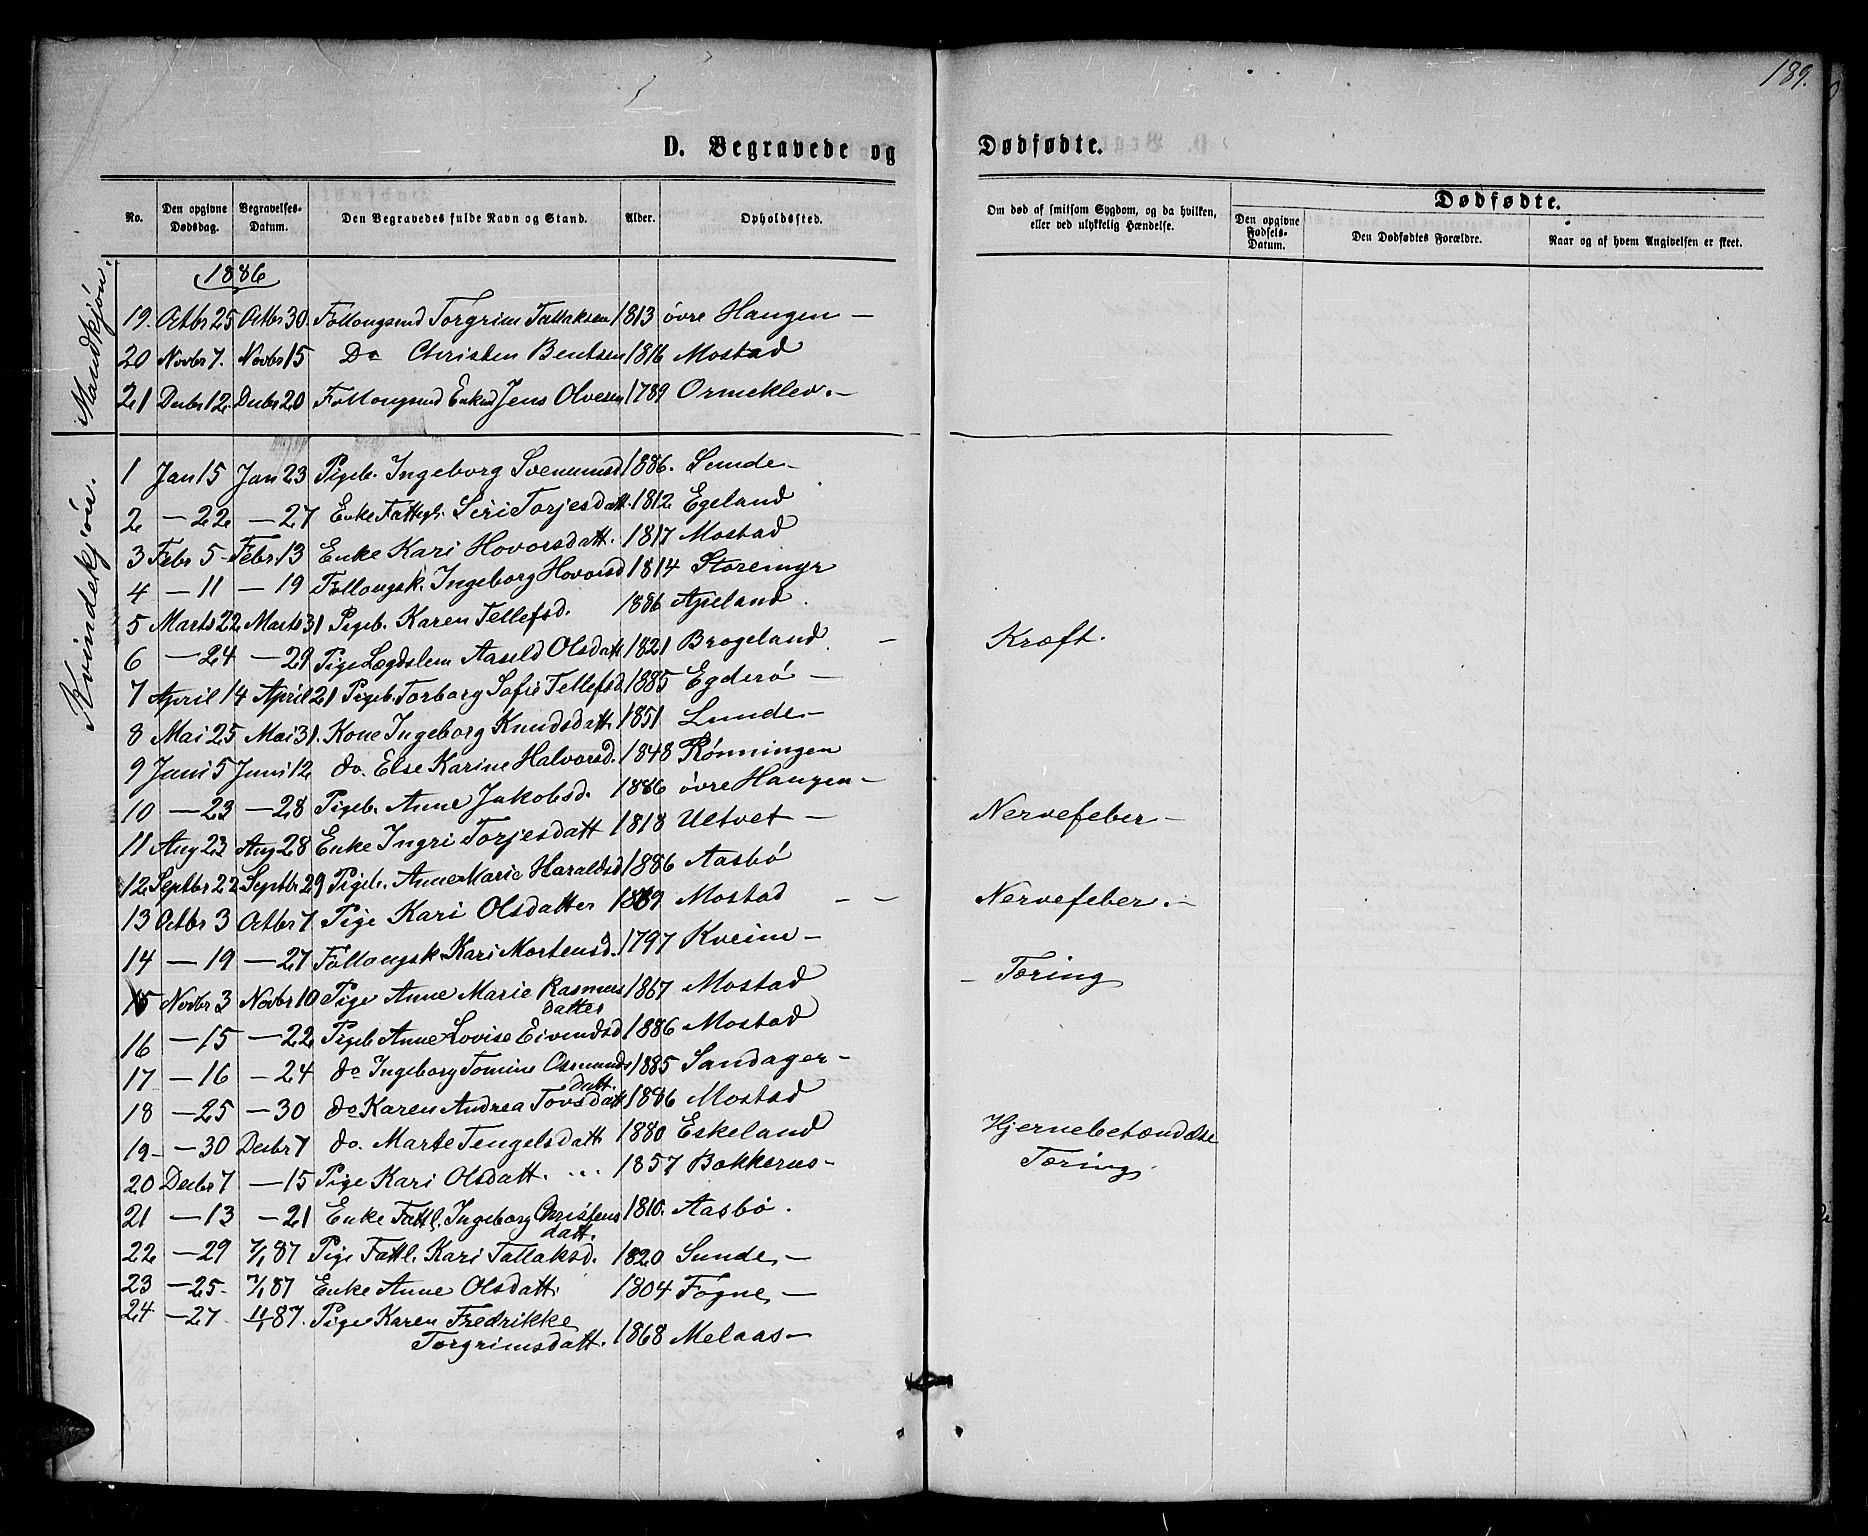 189.
D. Begravede og Dødfødte.
No. Den opgivne Dødsdag. Begravelses-Datum. Den Begravedes fulde Navn og Stand. Alder. Opholdssted. Om død af smitsom Sygdom, og da hvilken, eller ved ulykkelig Hændelse. Dødfødte. Den opgivne Fødsels-Datum. Den Dødfødtes Forældre. Naar og af hvem Angivelsen er skeet.
1886
Mandkjøn.
19. Octbr 25 Octbr 30. Føllougsmd Torgrim Tallaksen 1813 øvre Haugen —
20 Novbr 7. Novbr 15 Do Christen Bentsen 1816 Mostad
21 Decbr 12 Decbr 20 Føllougsmd Enkem Jens Olvesen 1789 Ormeklev. —
Kvindekjøn.
1 Jan 15 Jan 23 Pigeb. Ingeborg Svenumsd 1886. Sunde —
2 — 22 — 27 Enke Fattigl. Siri Torjesdatt. 1812 Egeland
3 Febr 5 - Febr 13 Enke Kari Hovorsdatt. 1817 Mostad
4 — 11 — 19 Føllougsk. Ingeborg Hovorsd 1814 Storemyr
5 Marts 22 Marts 31 Pigeb. Karen Tellefsd. 1886 Apeland
6 — 24 — 29 Pige Lægdslem Aaseld Olsdatt 1821 Brogeland — Kræft.
7 April 14 April 21 Pigeb. Torborg Sofie Tellefsd. 1885 Egderø —
8 Mai 25 Mai 31. Kone Ingeborg Knudsdatt. 1851 Lunde —
9 Juni 5 Juni 12 do. Else Karine Halvorsd. 1848 Rønningen
10 — 23 — 28 Pigeb. Anne Jakobsd. 1886 øvre Haugen —
11 Aug 23 Aug 28 Enke Ingri Torjesdatt 1818 Ultvet — Nervefeber —
12 Septbr 22 Septbr 29 Pigeb. Anne Marie Haraldsd 1886 Aasbø
13 Octbr 3 Octbr 7 Pige Kari Olsdatter 1869 Mostad — — Nervefeber. —
14 — 19 — 27 Føllougsk. Kari Mortensd. 1797 Kveine —
15 Novbr 3 Novbr 10 Pige Anne Marie Rasmus datter 1867 Mostad — Tæring
16 — 15 — 22 Pigeb Anne Lovise Eivindsd 1886 Mostad
17 — 16 — 24 do Ingeborg Tomine Osmunds datt. 1885 Sandager —
18 — 25 — 30 do Karen Andrea Tovsdatt 1886 Mostad
19 — 30 Decbr 7 do. Marte Tengelsdatt 1880 Eskeland Hjernebetændelse
20 Decbr 7 — 15 Pige Kari Olsdatt. 1857 Bakkerus — Tæring
21 — 13 — 21 Enke Fattl. Ingeborg Christens datt. 1810. Aasbø.
22 — 29 7/1 87 Pige Fattl. Kari Tallaksd. 1820 Sunde —
23 — 25 - 7/1 87 Enke Anne Olsdatt. 1804 Fogne —
24 — 27 11/1 87. Pige Karen Fredrikke
Torgrimsdatt. 1868 Melaas —